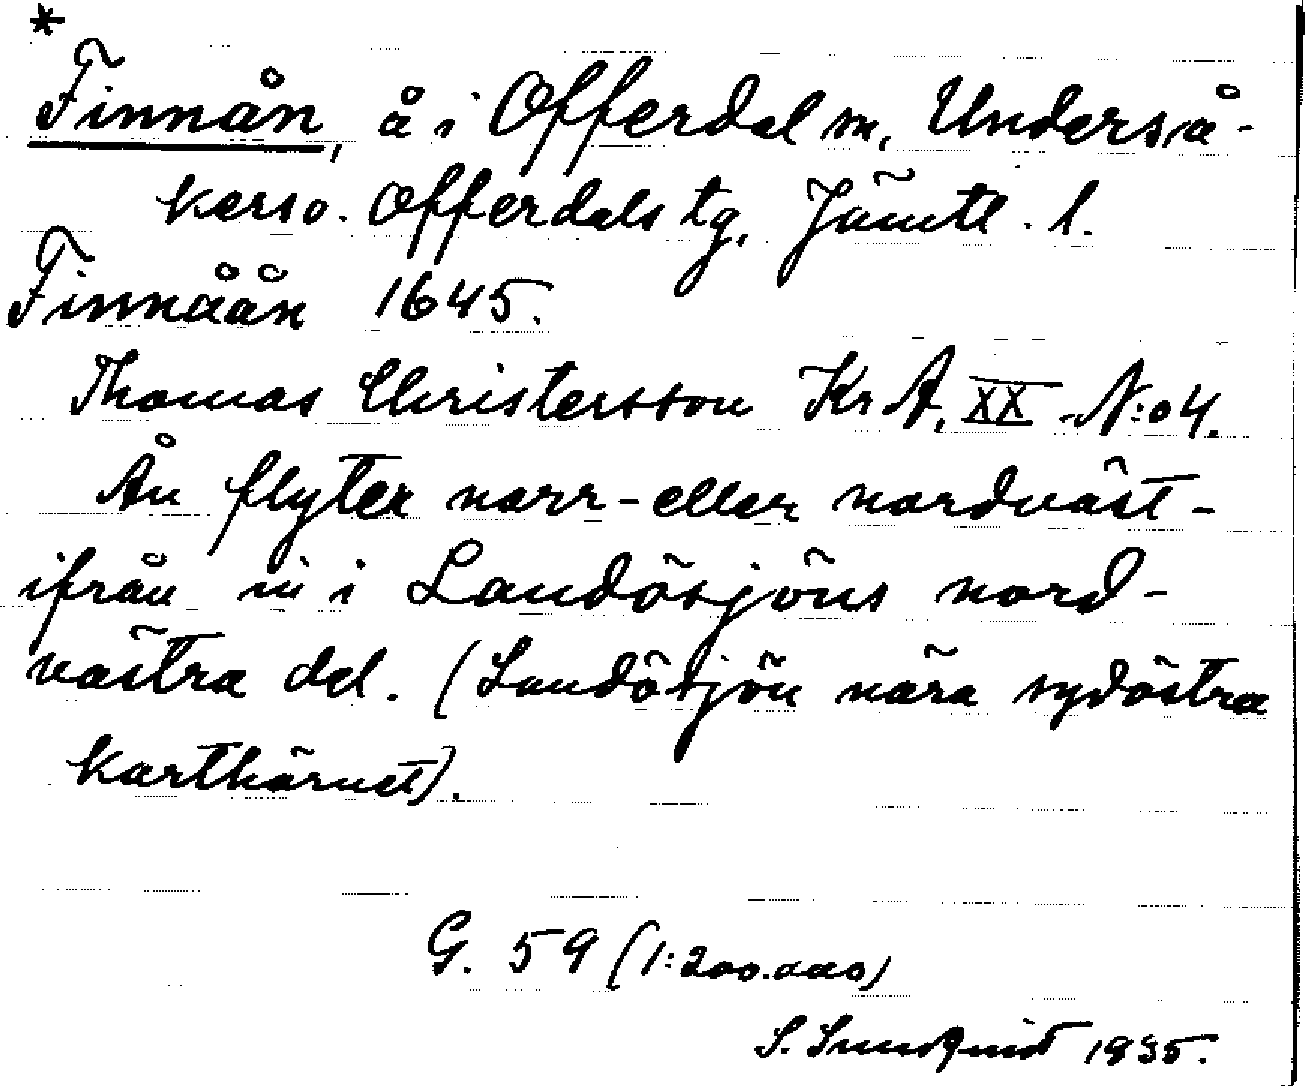 *
Finnån, å i Offerdal sn, Underså-
kers o. Offerdals tg, Jämtl. l.
Finnåån 1645.
Thomas Christersson KrA, XX N:o 4.
Ån flyter norr- eller nordväst-
ifrån in i Landösjöns nord-
västra del. (Landösjön nära sydöstra
karthörnet).
G. 59 (1:200.000)
S. Sundquist 1935.